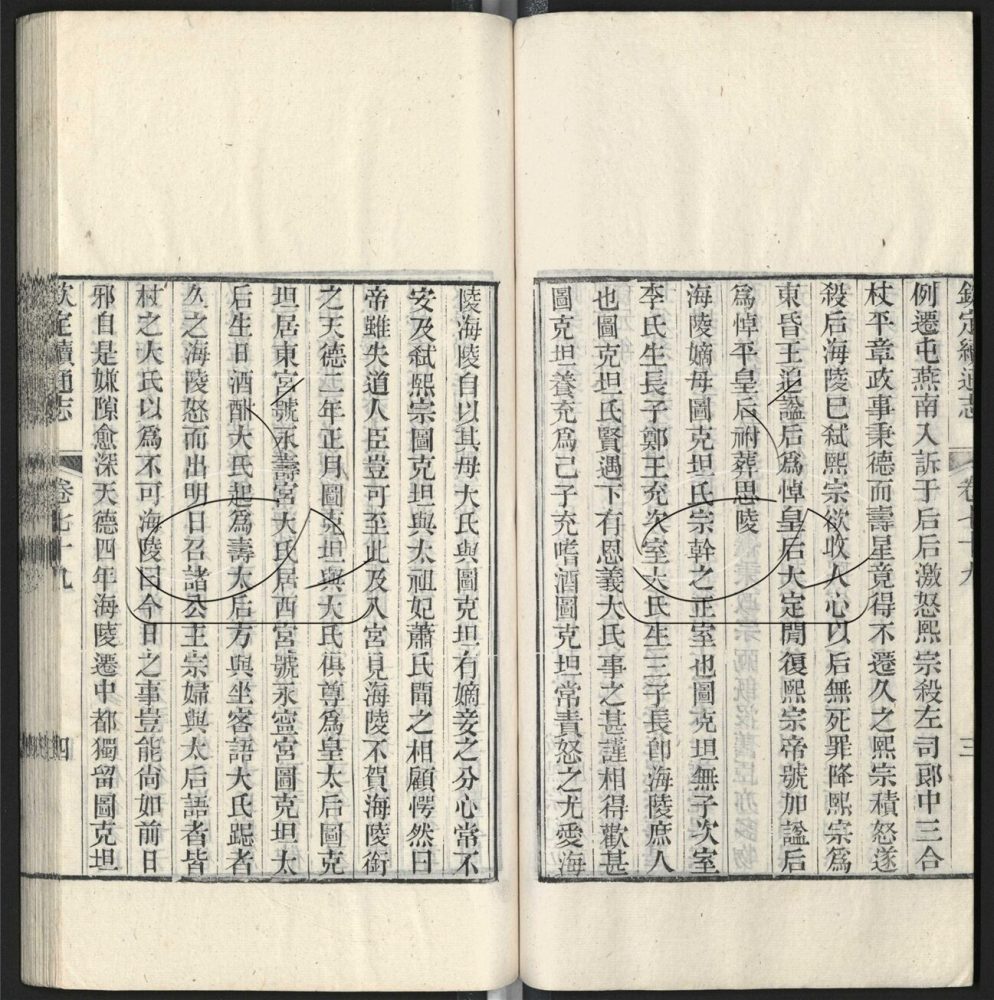 欽定續通志 卷七十九 三
例遷屯燕南入訴于后后激怒熙宗殺左司郎中三合
杖平章政事秉德而壽星竟得不遷久之熙宗積怒遂
殺后海陵已弑熙宗欲收人心以后無死罪降熙宗為
東昏王追諡后為悼皇后大定閒復熙宗帝號加諡后
為悼平皇后祔葬思陵
海陵嫡母圖克坦氏宗幹之正室也圖克坦無子次室
李氏生長子鄭王充次室大氏生三子長卽海陵庶人
也圖克坦氏賢遇下有恩義大氏事之甚謹相得歡甚
圖克坦養充為己子充嗜酒圖克坦常責怒之尤愛海
陵海陵自以其母大氏與圖克坦有嫡妾之分心常不
安及弑熙宗圖克坦與太祖妃蕭氏聞之相顧愕然曰
帝雖失道人臣豈可至此及入宮見海陵不賀海陵銜
之天德二年正月圖克坦與大氏俱尊為皇太后圖克
坦居東宮號永壽宮大氏居西宮號永寧宮圖克坦太
后生日酒酣大氏起為壽太后方與坐客語大氏跽者
久之海陵怒而出明日召諸公主宗婦與太后語者皆
杖之大氏以為不可海陵曰今日之事豈能尙如前日
邪自是嫌隙愈深天德四年海陵遷中都獨留圖克坦
欽定續通志 卷七十九 四